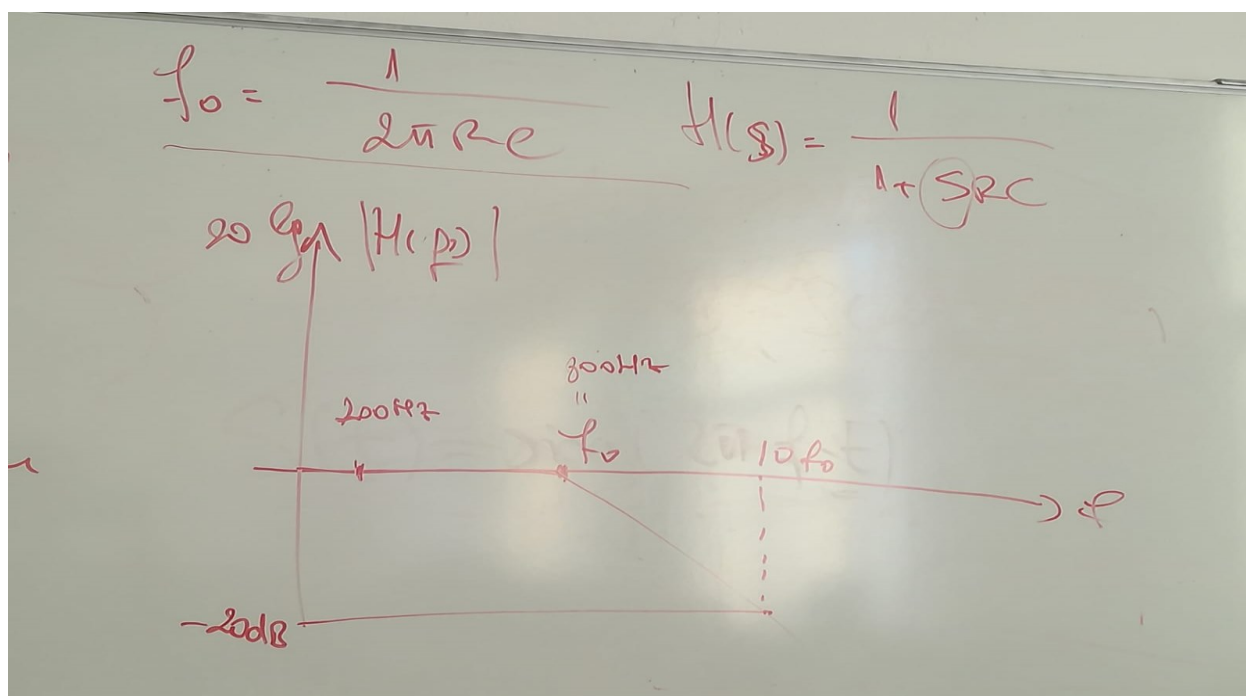 f₀ = 1 / 2πRC
H(s) = 1 / 1 + SRC
20 log |H(p)|
800Hz
"
200Hz
f₀
10 f₀
f
-20dB